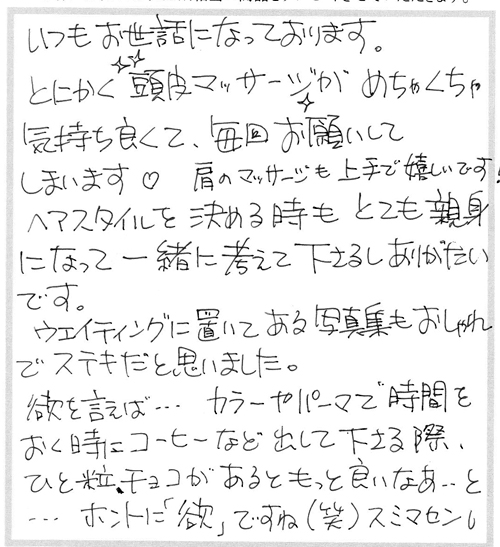 いつもお世話になっております。
とにかく頭皮マッサージが めちゃくちゃ
気持ち良くて、毎回お願いして
しまいます♡ 肩のマッサージも上手で嬉しいです!
ヘアスタイルを決める時もとても親身
になって一緒に考えて下さるしありがたい
です。
ウエイティングに置いてある写真集もおしゃれ
でステキだと思いました。
欲を言えば… カラーやパーマで時間を
おく時にコーヒーなど出して下さる際、
ひと粒、チョコがあるともっと良いなあ…と
… ホントに「欲」ですね(笑)スミマセン